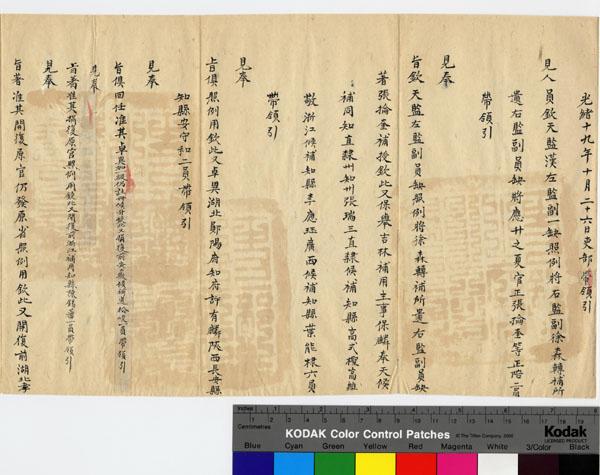 光緒十九年十月二十六日吏部帶領引
見人員欽天監漢左監副一缺照例將右監副徐森轉補所
遺右監副員缺將應升之夏官正張掄奎等正陪二員
帶領引
見奉
旨欽天監左監副員缺照例將徐森轉補所遺右監副員缺
著張掄奎補授欽此又保舉吉林補用主事保麟奉天候
補同知直隸州知州張瑞三直隸候補知縣高式 高維
敬浙江候補知縣李應珏廣西候補知縣葉能 六員
帶領引
見奉
旨俱照例用欽此又卓異湖北鄖陽府知府許有麟陝西長安縣
知縣安守和二員帶領引
見奉
旨俱回任准其卓異加一級仍註冊候升欽此又開復前安徽候補道 一員帶領引
見奉
旨著准其開復原官照例用欽此又開復前浙江補用知縣陳錫 一員帶領引
見奉
旨著准其開復原官仍發原省照例用欽此又開復前湖北
Inches
Centimetres
KODAK Color Control Patches
© The Tiffen Company, 2000
Kodak
LICENSED PRODUCT
Blue Cyan Green Yellow Red Magenta White 3/Color Black